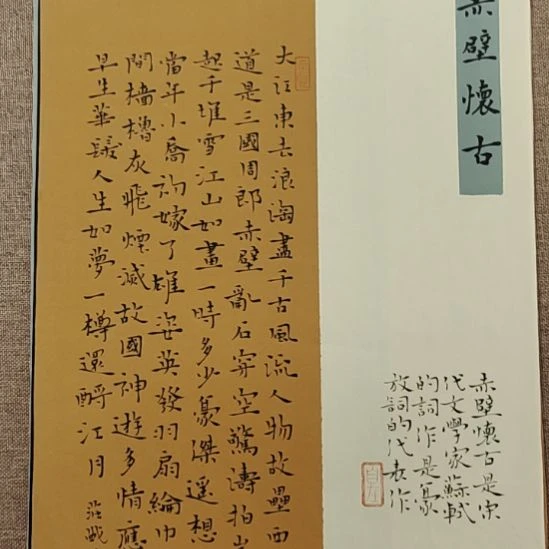 赤壁懷古
赤壁懷古是宋
代文學家蘇軾
的詞作是豪
放詞的代表作
大江東去浪淘盡千古風流人物故壘西
道是三國周郎赤壁亂石穿空驚濤拍岸
起千堆雪江山如畫一時多少豪傑遙想
當年小喬初嫁了雄姿英發羽扇綸巾
間檣櫓灰飛煙滅故國神遊多情應
早生華髮人生如夢一樽還酹江月